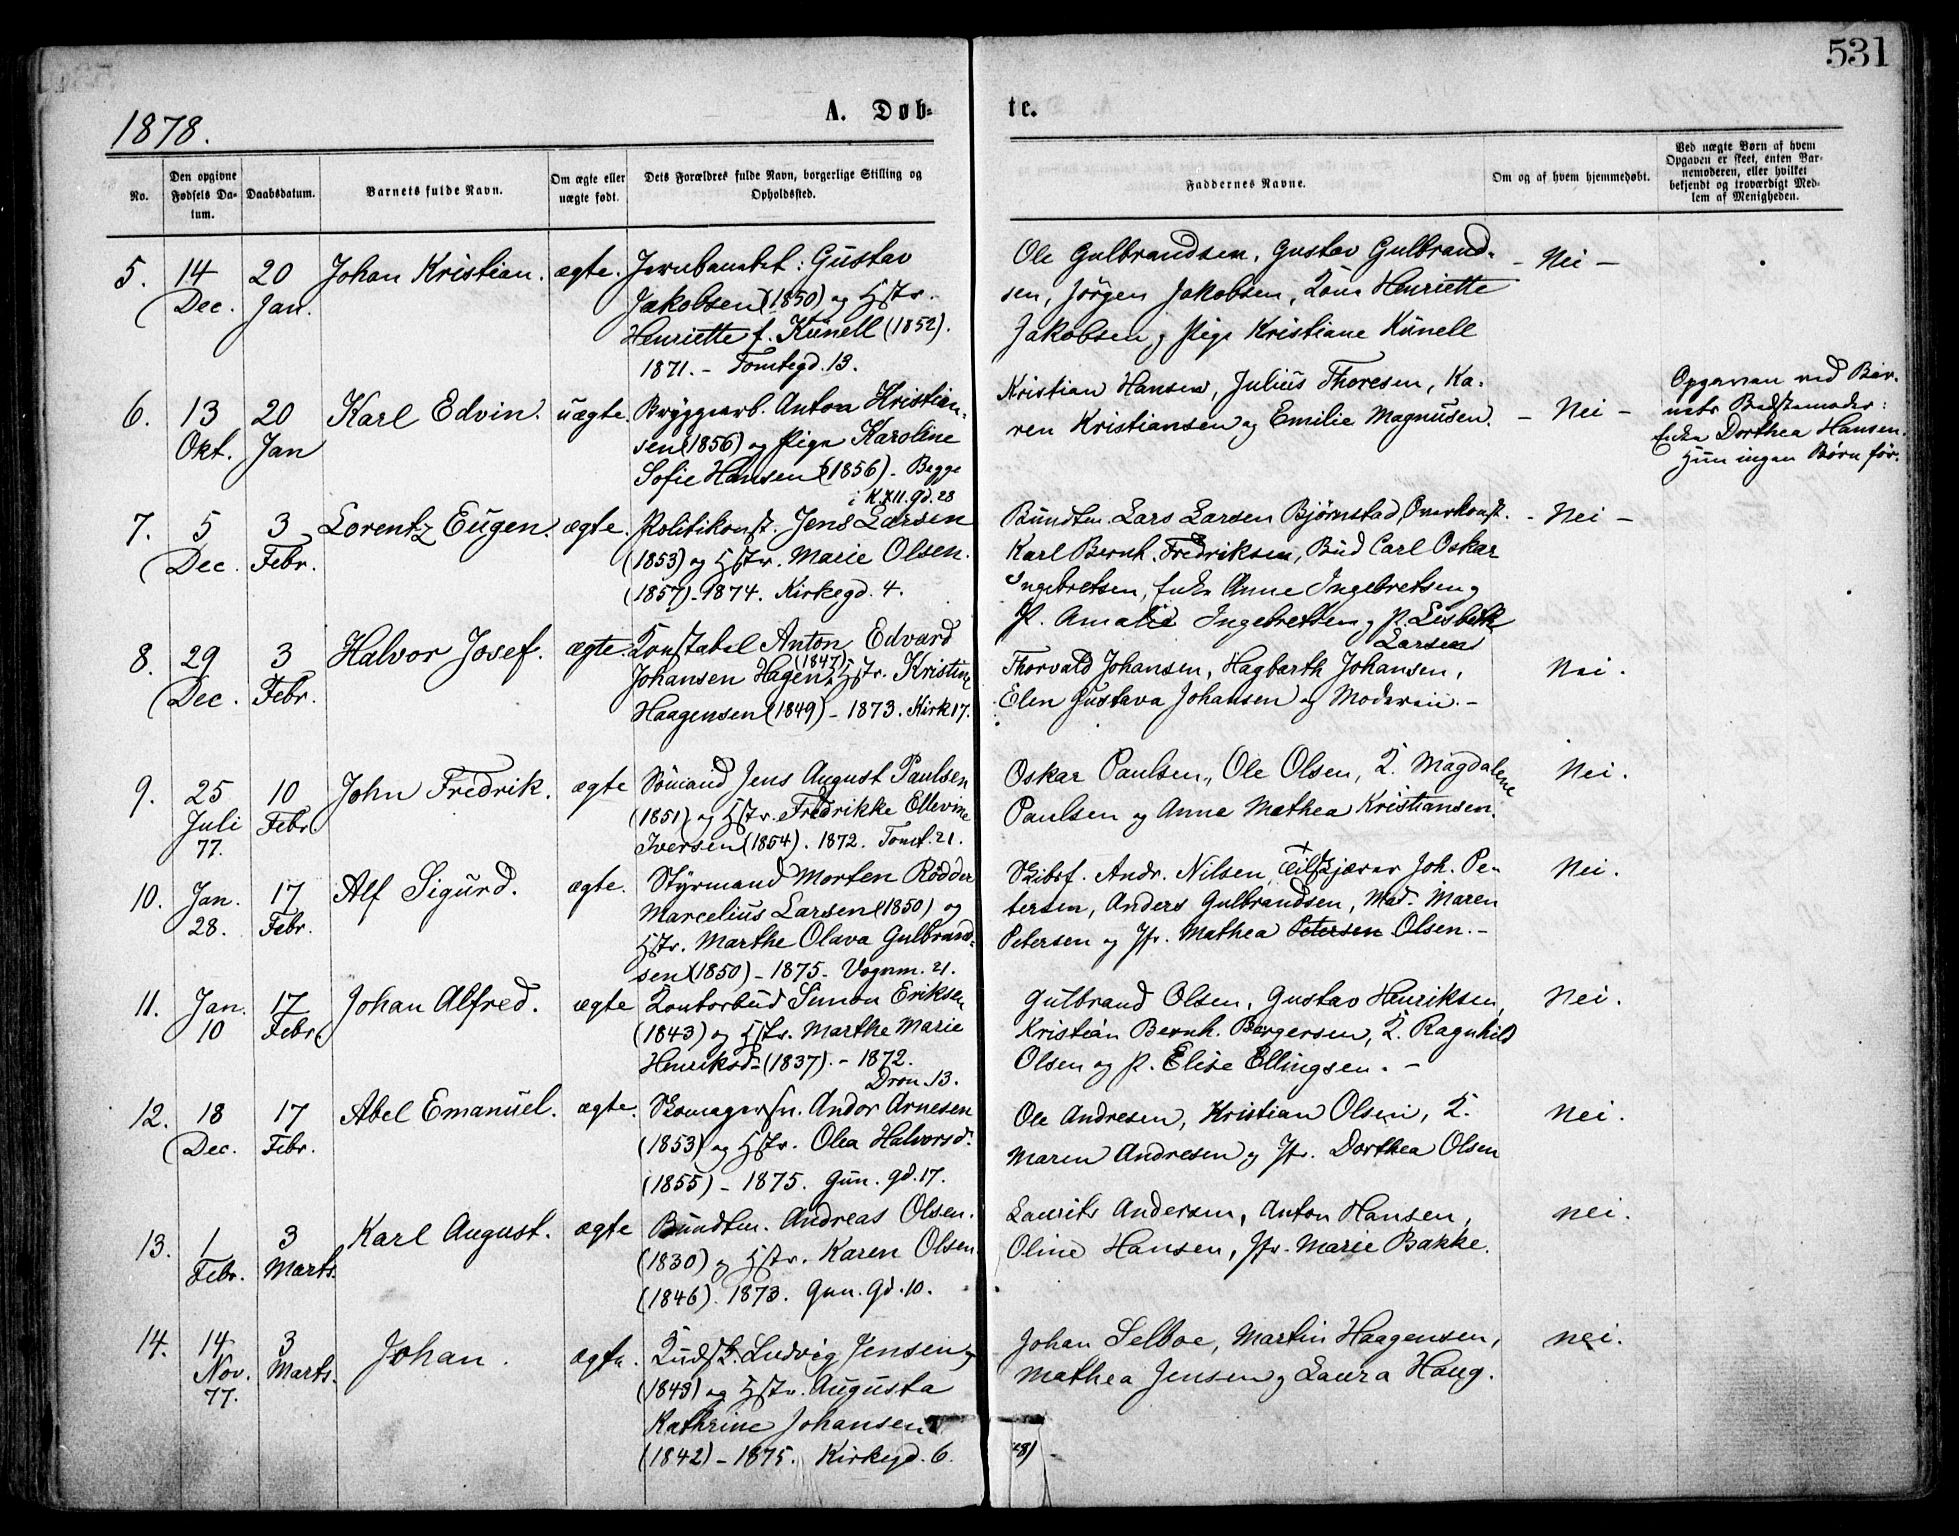 531
1878.
A. Døb-
te.
No.
Den opgivne Fødsels Da-
tum.
Daabsdatum.
Barnets fulde Navn.
Om ægte eller
uægte født.
Dets Forældres fulde Navn, borgerlige Stilling og
Opholdssted.
Faddernes Navne.
Om og af hvem hjemmedøbt.
Ved uægte Børn af hvem
Opgaven er skeet, enten Bar-
nemoderen, eller hvilket
bekjendt og troværdigt Med-
lem af Menigheden.
5. 14 Dec. 20 Jan. Johan Kristian. ægte. Gustav
Jakobsen (1850) og Hstr.
Henriette f. Künell (1852).
1871. - Tomtegd. 13.
Ole Gulbrandsen, Gustav Gulbrand-
sen, Jørgen Jakobsen, Kone Henriette
Jakobsen og Pige Kristiane Künell
- Nei -
6. 13 Okt. 20 Jan Karl Edvin. uægte. Bryggearb. Anton Kristian-
sen (1856) og Pige Karoline
Sofie Hansen (1856) - Begge
i K.XII.gd. 28
Kristian Hansen, Julius Thoresen, Ka-
ren Kristiansen og Emilie Magnusen.
- Nei -
Opgaven ved Bar-
nets Bedstemoder:
Enke Dorthea Hansen.
Hun ingen Børn før.
7. 5 Dec. 3 Febr. Lorentz Eugen. ægte. Politikonst. Jens Larsen
(1853) og Hstr. Marie Olsen.
(1857) - 1874. Kirkegd. 4.
Bundtm. Lars Larsen Bjørnstad, Overkonst.
Karl Bernh. Fredriksen, Bud Carl Oskar
Ingebretsen, Enke Anne Ingebretsen og
P. Amalie Ingebretsen og P. Lisbeth
Larsen
- Nei -
8. 29 Dec. 3 Febr. Halvor Josef. ægte. Konstabel Anton Edvard
Johansen Hagen (1847) & Hstr. Kristine
Haagensen (1849) - 1873. Kirk 17.
Thorvald Johansen, Hagbarth Johansen,
Elen Gustava Johansen og Moderen. -
Nei.
9. 25 Juli 77. 10 Febr. John Fredrik. ægte Sömand Jens August Paulsen
(1851) og Hstr. Fredrikke Ellevine
Iversen (1854). 1872. Tomt. 21.
Oskar Paulsen, Ole Olsen, K. Magdalene
Paulsen og Anne Mathea Kristiansen.
Nei.
10. Jan. 28. 17 Febr. Alf Sigurd. ægte. Styrmand Morten Rødder
Marcelius Larsen (1850) og
Hstr. Marthe Olava Gulbrand-
sen (1850) - 1875. Vognm. 21.
Skibsf. Andr. Nilsen, Tilskjærer Joh. Pe-
tersen, Anders Gulbrandsen, Mad. Maren
Petersen og Jfr. Mathea Petersen Olsen. -
Nei.
11. Jan. 10 17 Febr. Johan Alfred. ægte Kontorbud Simon Eriksen
(1843) og Hstr. Marthe Marie
Henriksd- (1837). - 1872.
Dron. 13.
Gulbrand Olsen, Gustav Henriksen,
Kristian Bernh. Borgersen, K. Ragnhild
Olsen og P. Elise Ellingsen. -
Nei.
12. 18 Dec. 17 Febr. Abel Emanuel. ægte. Skomagersv. Andor Arnesen
(1853) og Hstr. Olea Halvorsd.
(1855) - 1875. Gün. gd. 17.
Ole Andresen, Kristian Olsen, K.
Maren Andresen og Jfr. Dorthea Olsen
Nei.
13. 1 Febr. 3 Marts. Karl August. ægte Bundtm. Andreas Olsen.
(1830) og Hstr. Karen Olsen
(1846). 1873. Gün. gd. 10.
Laurits Andersen, Anton Hansen,
Oline Hansen, Jfr. Marie Bakke.
Nei.
14. 14 Nov. 77. 3 Marts. Johan. ægte. Ludvig Jensen
(1849) og Hstr. Augusta
Kathrine Johansen
(1842) - 1875. Kirkegd. 6.
Johan Selboe, Martin Haagensen,
Mathea Jensen og Laura Haug.
nei.